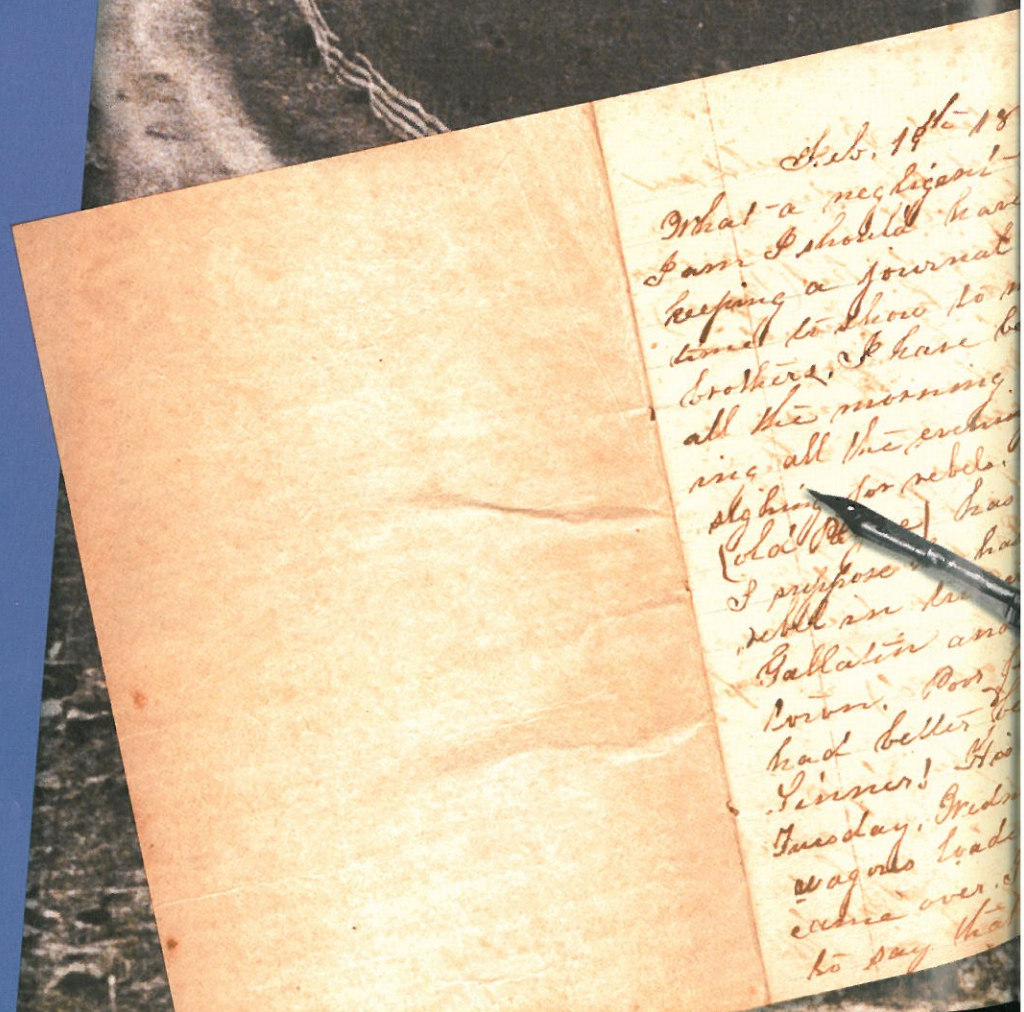 Feb. 19th 18
What a negligent
I am I should have
keeping a journal
time to show to
brothers. I have be
all the morning.
ing all the evening
sighing for rebels.
(old Payne) has
I suppose he has
rebel in the
Gallatin and
town. Poor
had better be
Sinner! His
Tuesday, Wedn
wagons loade
came over.
to say tha